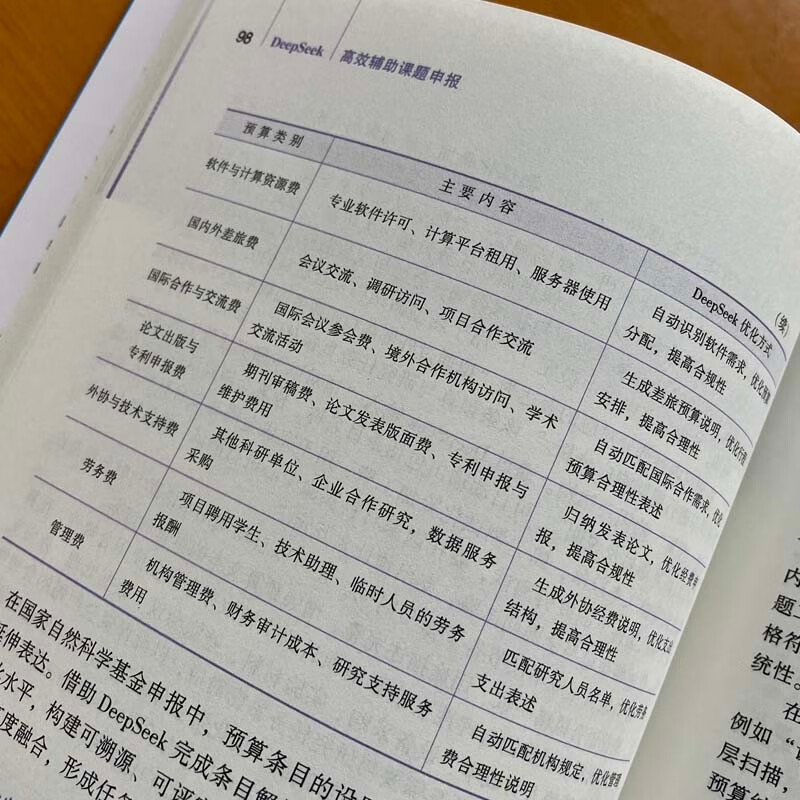 98 DeepSeek 高效辅助课题申报
(续)
预算类别 主要内容 DeepSeek 优化方式
软件与计算资源费 专业软件许可、计算平台租用、服务器使用 自动识别软件需求，优化
分配，提高合规性
国内外差旅费 会议交流、调研访问、项目合作交流 生成差旅预算说明，优化行程
安排，提高合理性
国际合作与交流费 国际会议参会费、境外合作机构访问、学术
交流活动 自动匹配国际合作需求，优化
预算合理性表述
论文出版与
专利申报费 期刊审稿费、论文发表版面费、专利申报与
维护费用 归纳发表论文，优化经费
报，提高合规性
外协与技术支持费 其他科研单位、企业合作研究，数据服务
采购 生成外协经费说明，优化支出
结构，提高合理性
劳务费 项目聘用学生、技术助理、临时人员的劳务
报酬 匹配研究人员名单，优化劳务
支出表述
管理费 机构管理费、财务审计成本、研究支持服务
费用 自动匹配机构规定，优化管理
费合理性说明
在国家自然科学基金申报中，预算条目的设
延伸表达。借助 DeepSeek 完成条目解
水平，构建可溯源、可评
度融合，形成任
内
题
格符
统性。
在
例如“
层扫描，
预算